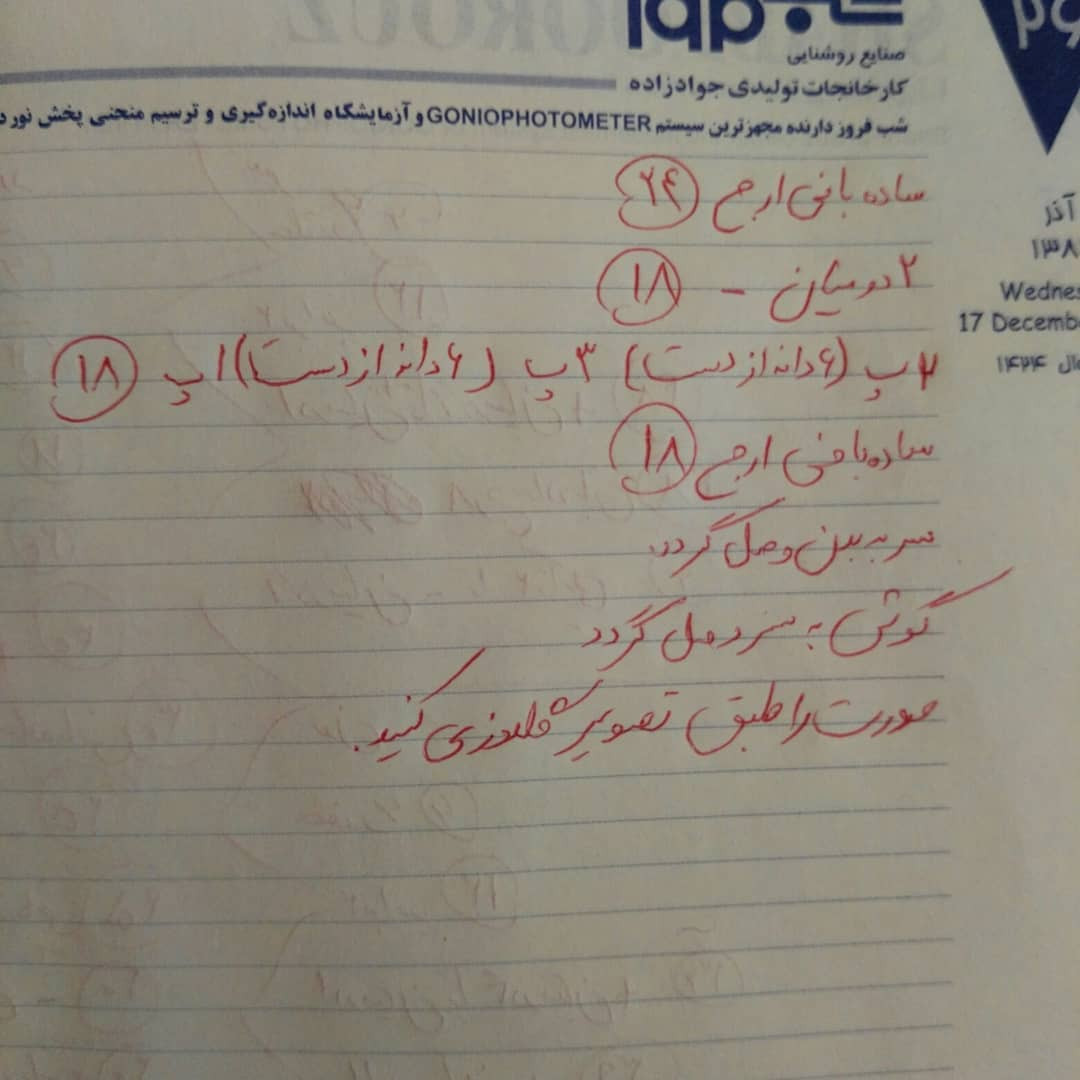 صنایع روشنایی
کارخانجات تولیدی جوادزاده
شب فروز دارنده مجهزترین سیستم GONIOPHOTOMETER و آزمایشگاه اندازه‌گیری و ترسیم منحنی پخش نور
آذر
۱۳۸
Wednes
17 Decemb
۱۴۲۴
ساده بافی ۱رج (۲۴)
۲ در میان - (۱۸)
۲پ (۶ دانه از دست) ۳پ (۶ دانه از دست) ۱پ (۱۸)
ساده بافی ۱رج (۱۸)
سر به بدن وصل گردد.
گوش به سر وصل گردد
صورت را طبق تصویر گلدوزی کنید.